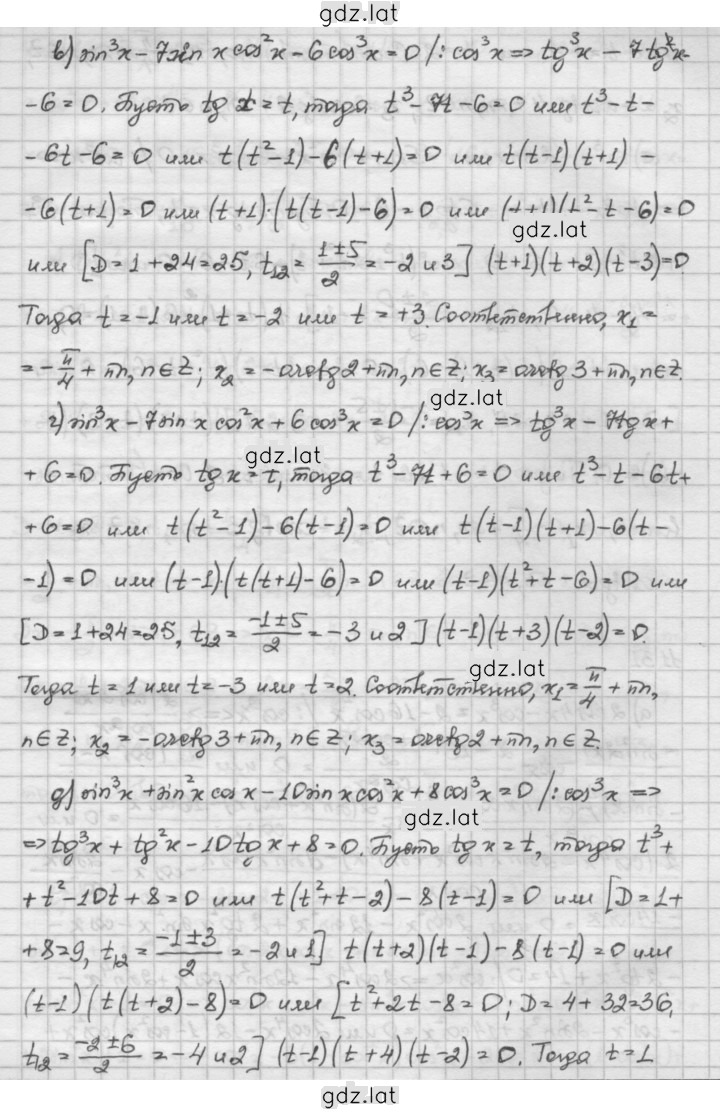 gdz.lat
в) sin³x − 7sin x cos²x − 6cos³x = 0 /: cos³x ⇒ tg³x − 7tg²x −
− 6 = 0. Пусть tg x = t, тогда t³ − 7t − 6 = 0 или t³ − t −
− 6t − 6 = 0 или t(t² − 1) − 6(t + 1) = 0 или t(t − 1)(t + 1) −
− 6(t + 1) = 0 или (t + 1)·(t(t − 1) − 6) = 0 или (t + 1)(t² − t − 6) = 0
gdz.lat
или [D = 1 + 24 = 25, t₁₂ = (1 ± 5)/2 = −2 и 3] (t + 1)(t + 2)(t − 3) = 0
Тогда t = −1 или t = −2 или t = +3. Соответственно, x₁ =
= −π/4 + πn, n ∈ Z; x₂ = −arctg 2 + πn, n ∈ Z; x₃ = arctg 3 + πn, n ∈ Z.
gdz.lat
г) sin³x − 7sin x cos²x + 6cos³x = 0 /: cos³x ⇒ tg³x − 7tg x +
gdz.lat
+ 6 = 0. Пусть tg x = t, тогда t³ − 7t + 6 = 0 или t³ − t − 6t +
+ 6 = 0 или t(t² − 1) − 6(t − 1) = 0 или t(t − 1)(t + 1) − 6(t −
− 1) = 0 или (t − 1)·(t(t + 1) − 6) = 0 или (t − 1)(t² + t − 6) = 0 или
[D = 1 + 24 = 25, t₁₂ = (−1 ± 5)/2 = −3 и 2] (t − 1)(t + 3)(t − 2) = 0.
gdz.lat
Тогда t = 1 или t = −3 или t = 2. Соответственно, x₁ = π/4 + πn,
n ∈ Z; x₂ = −arctg 3 + πn, n ∈ Z; x₃ = arctg 2 + πn, n ∈ Z.
д) sin³x + sin²x cos x − 10sin x cos²x + 8cos³x = 0 /: cos³x ⇒
gdz.lat
⇒ tg³x + tg²x − 10tg x + 8 = 0. Пусть tg x = t, тогда t³ +
+ t² − 10t + 8 = 0 или t(t² + t − 2) − 8(t − 1) = 0 или [D = 1 +
+ 8 = 9, t₁₂ = (−1 ± 3)/2 = −2 и 1] t(t + 2)(t − 1) − 8(t − 1) = 0 или
(t − 1)(t(t + 2) − 8) = 0 или [t² + 2t − 8 = 0; D = 4 + 32 = 36,
t₁₂ = (−2 ± 6)/2 = −4 и 2] (t − 1)(t + 4)(t − 2) = 0. Тогда t = 1
gdz.lat